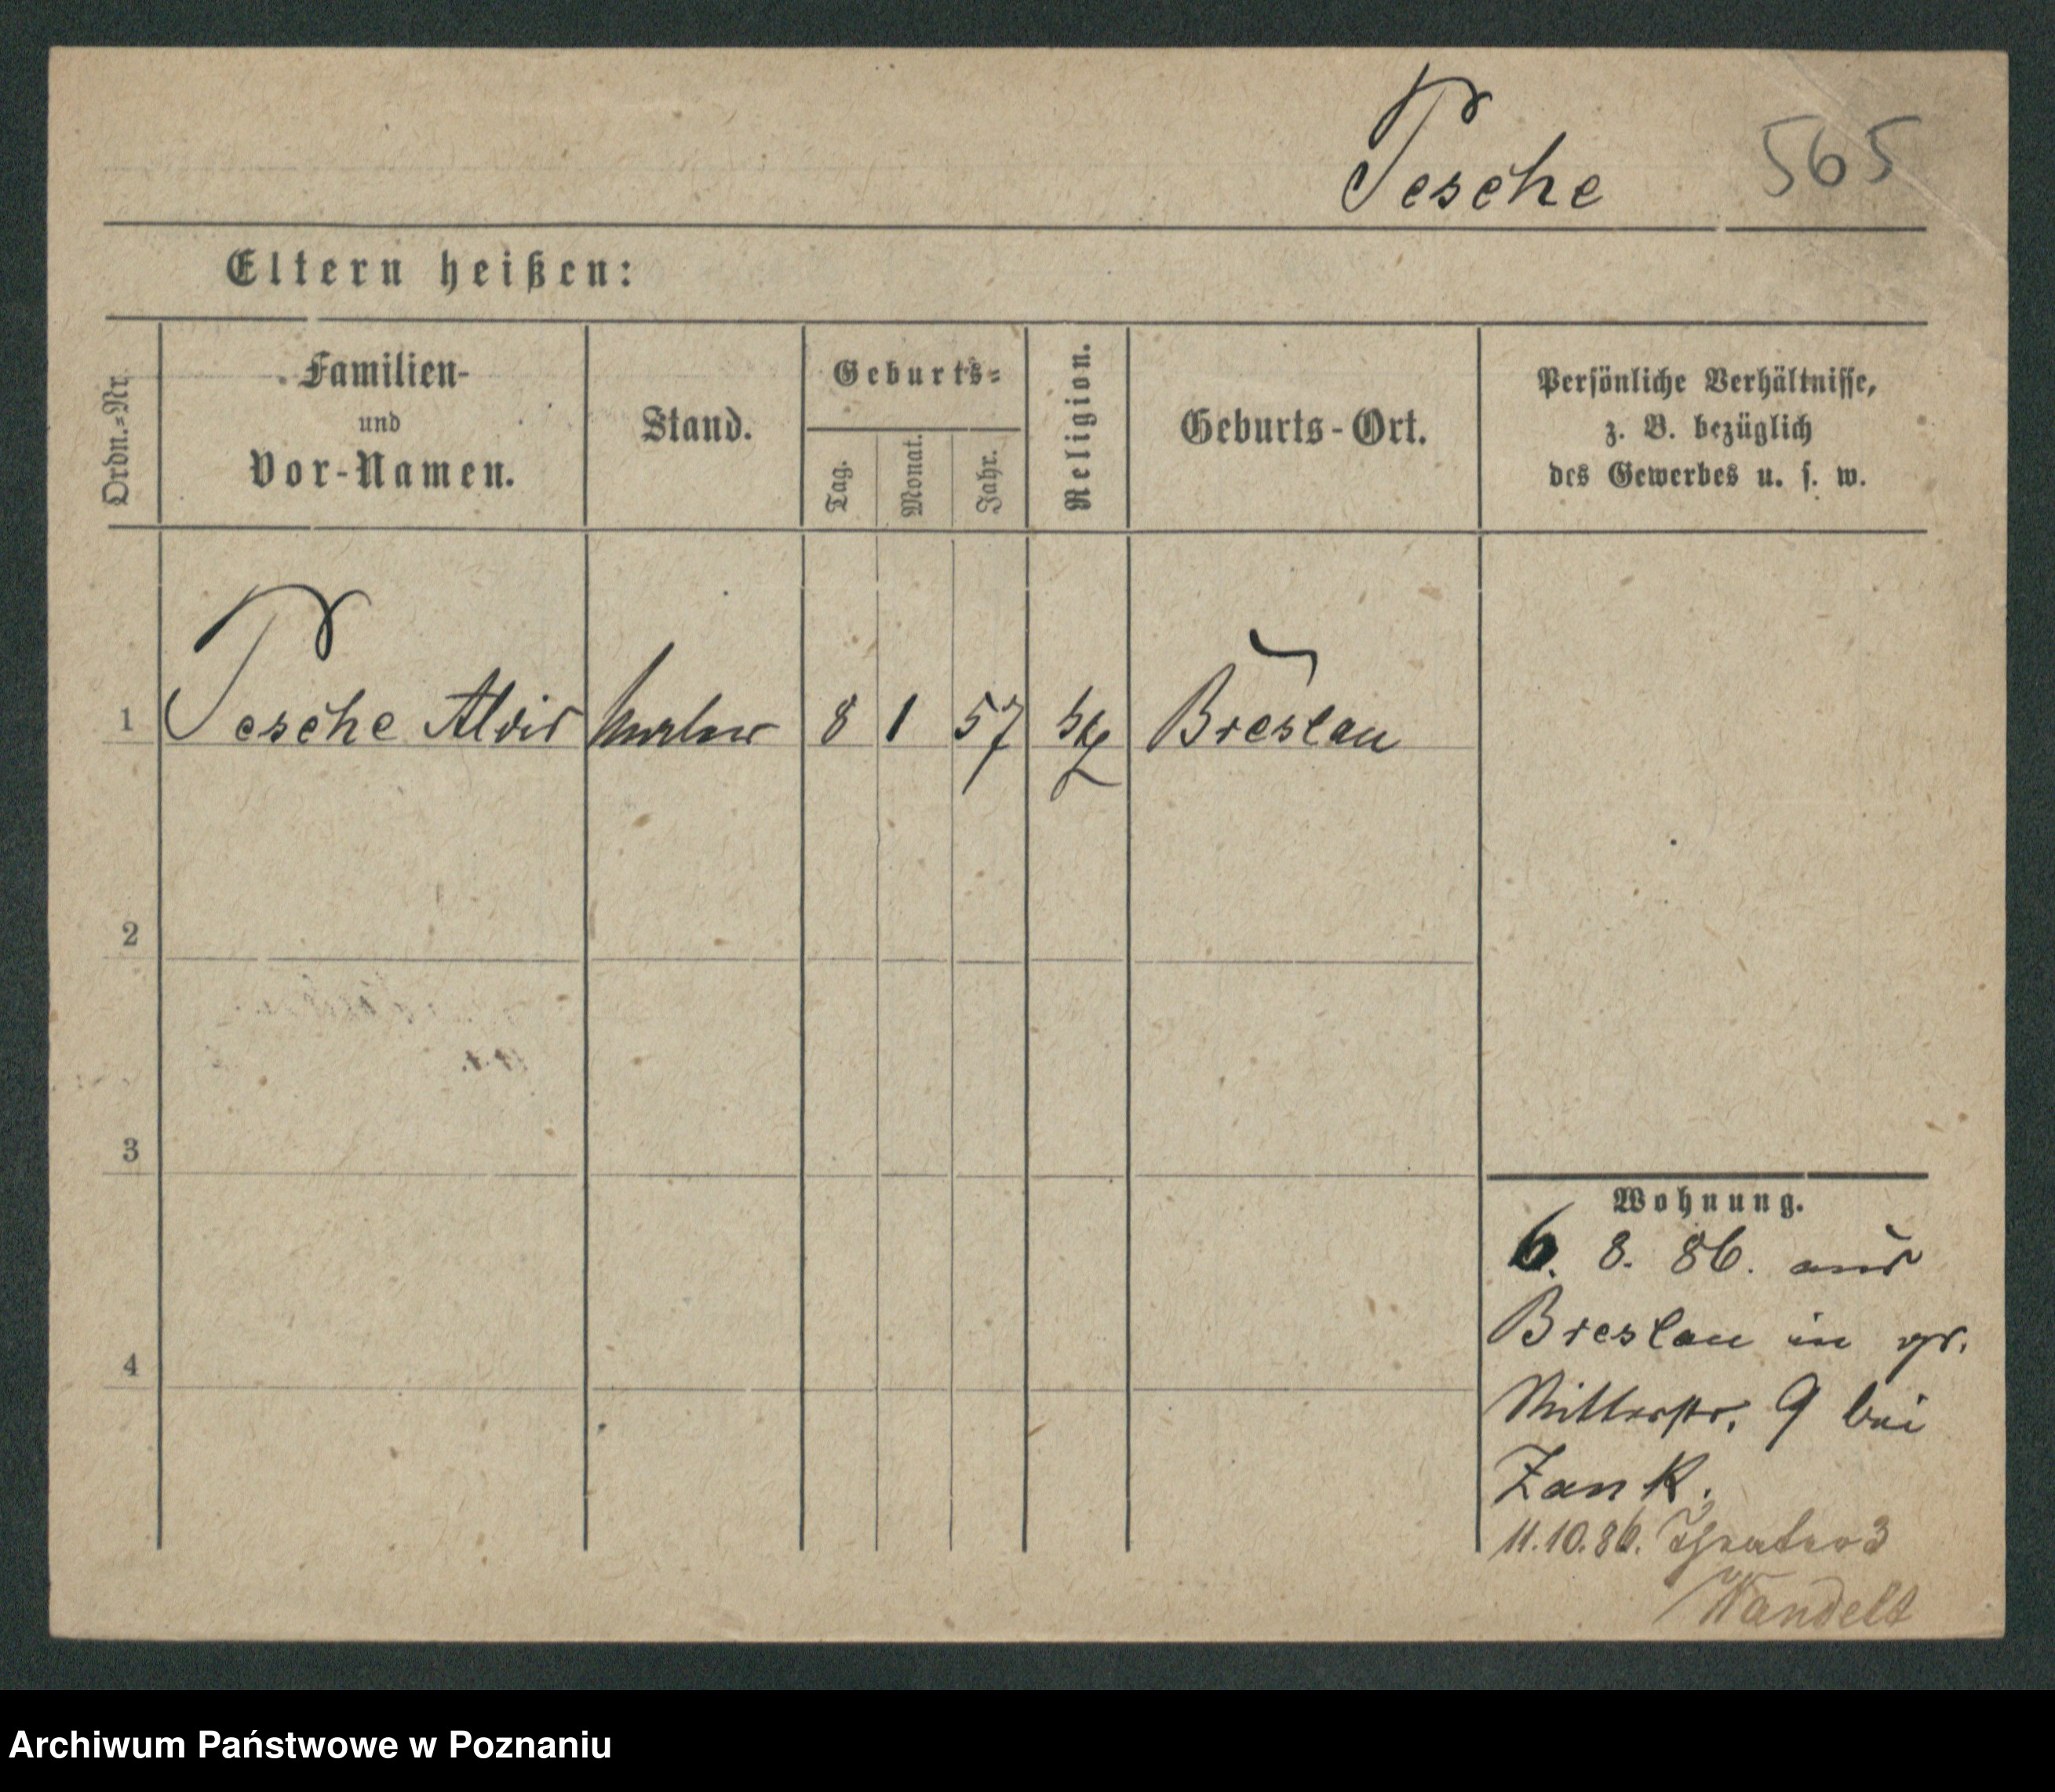 Tesche 565
Eltern heißen:
Ordn.-Nr.
Familien-
und
Vor-Namen.
Stand.
Geburts-
Tag.
Monat.
Jahr.
Religion.
Geburts-Ort.
Persönliche Verhältnisse,
z. B. bezüglich
des Gewerbes u. s. w.
1 Tesche Alois 8 1 57 Breslau
2
3
4
Wohnung.
6. 8. 86. aus
Breslau in gr.
Ritterstr. 9 bei
Zank.
11.10.86. Theaterstr 3
Wandelt
Archiwum Państwowe w Poznaniu